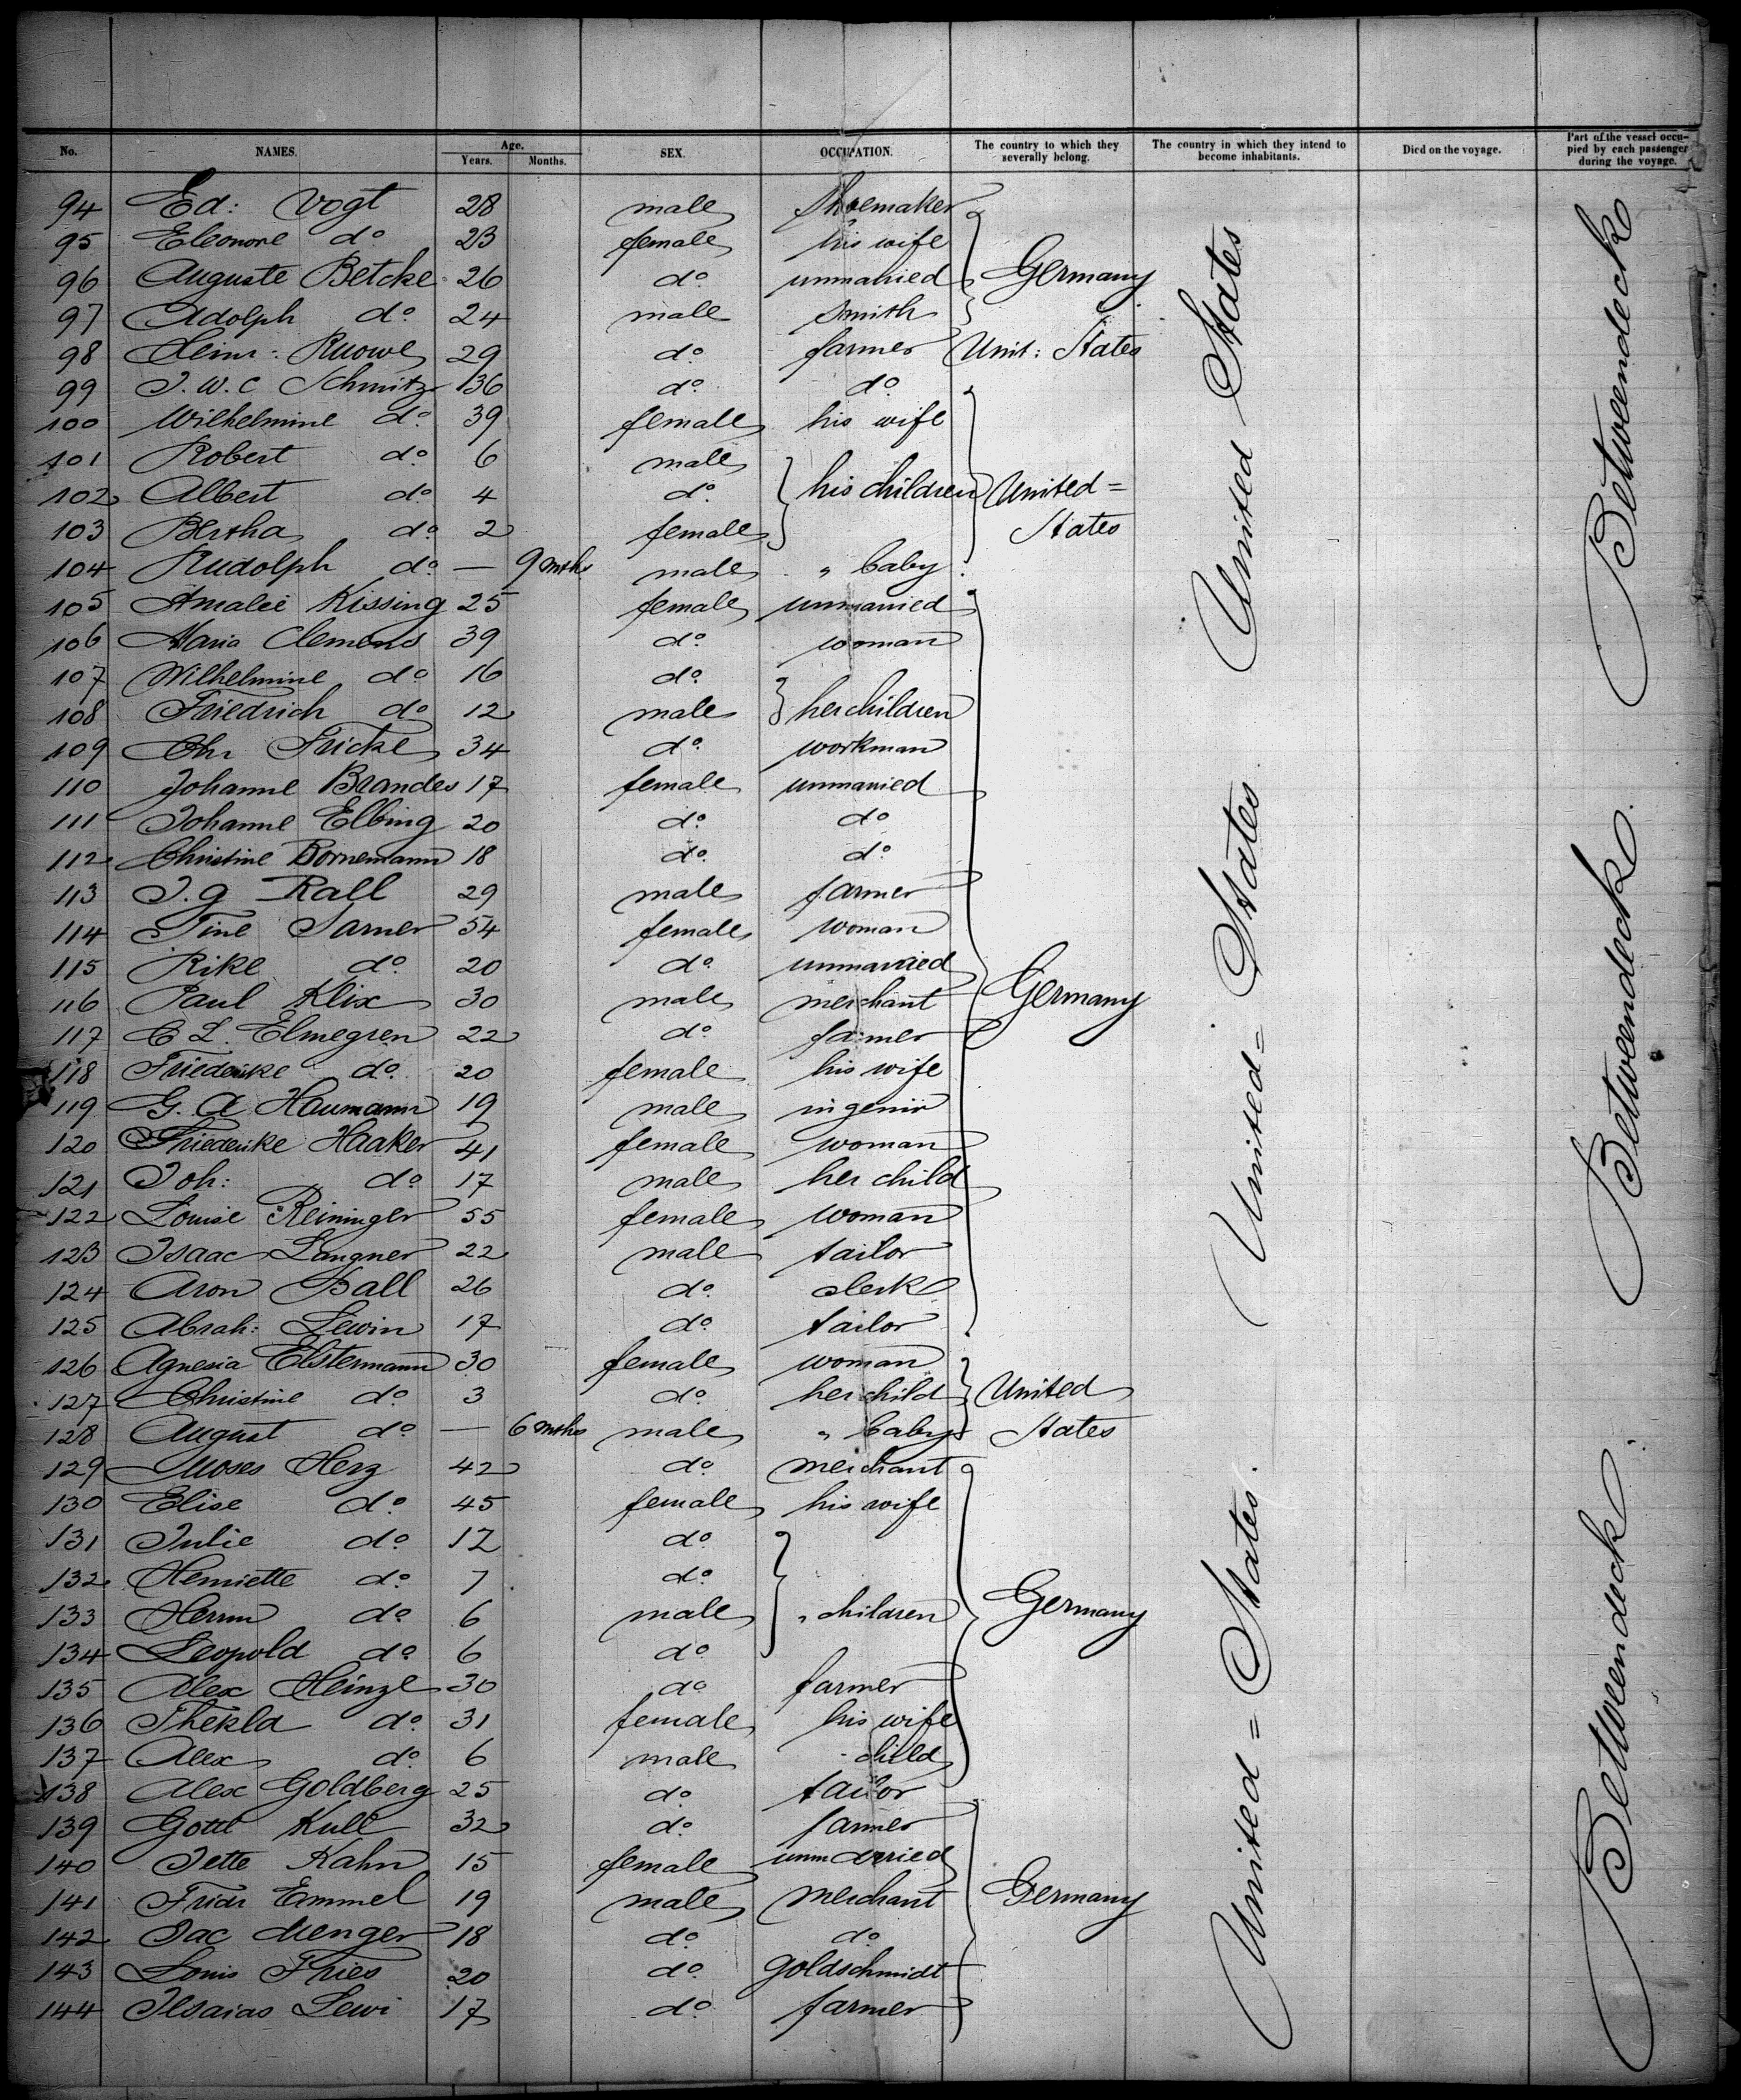 No. NAMES. Age. Years. Months. SEX. OCCUPATION. The country to which they severally belong. The country in which they intend to become inhabitants. Died on the voyage. Part of the vessel occupied by each passenger during the voyage.
94 Ed: Vogt 28 male shoemaker
95 Eleonore do 23 female his wife
96 Auguste Betcke 26 do unmarried Germany
97 Adolph do 24 male smith
98 Heinr: Ruowe 29 do farmer Unit: States
99 J. W. C Schmitz 36 do do
100 Wilhelmine do 39 female his wife
101 Robert do 6 male
102 Albert do 4 do his children United=
103 Bertha do 2 female States
104 Rudolph do — 9 mths male " baby
105 Amalie Kissing 25 female unmarried
106 Maria Clemens 39 do woman
107 Wilhelmine do 16 do
108 Friedrich do 12 male her children
109 Chr Fricke 34 do workman
110 Johanne Brandes 17 female unmarried
111 Johanne Elbing 20 do do
112 Christine Bornemann 18 do do
113 J. G Rall 29 male farmer
114 Tine Sarner 54 female woman
115 Rike do 20 do unmarried
116 Paul Klix 30 male merchant Germany
117 C L. Elmegren 22 do farmer
118 Friederike do 20 female his wife
119 G. A Haumann 19 male ingenir
120 Friederike Haaker 41 female woman
121 Joh: do 17 male her child
122 Louise Reininger 55 female woman
123 Isaac Langner 22 male tailor
124 Aron Ball 26 do clerk
125 Abrah: Lewin 17 do tailor
126 Agnesia Elstermann 30 female woman
127 Christine do 3 do her child United
128 August do — 6 mths male " baby States
129 Moses Herz 42 do merchant
130 Elise do 45 female his wife
131 Julie do 12 do
132 Henriette do 7 do
133 Herm do 6 male " children Germany
134 Leopold do 6 do
135 Alex Heinze 30 do farmer
136 Thekla do 31 female his wife
137 Alex do 6 male " child
138 Alex Goldberg 25 do tailor
139 Gottl Kull 32 do farmer
140 Jette Kahn 15 female unmarried
141 Friedr Emmel 19 male merchant Germany
142 Jac Menger 18 do do
143 Louis Fries 20 do goldschmidt
144 Isaias Lewi 17 do farmer
United States
United= States
United= States.
Betweendeck
Betweendeck.
Betweendeck.